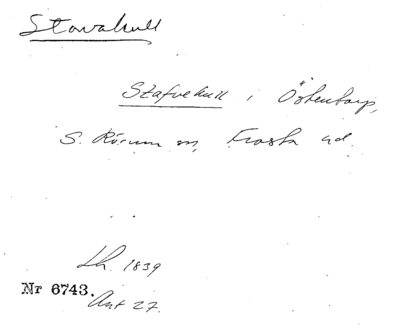 Stavakull
Stafvekull i Östentorp,
S. Rörum sn, Frosta hd.
Lh. 1839
Nr 6743.
Akt 27.